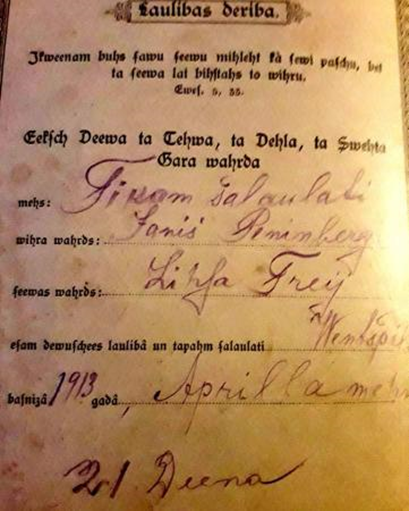 Laulibas deriba.
Ikweenam buhs sawu seewu mihleht kà sewi paschu, bet
ta seewa lai bihstahs to wihru.
Ewes. 5, 33.
Eeksch Deewa ta Tehwa, ta Dehla, ta Swehta
Gara wahrda
mehs: Tikam salaulati
wihra wahrds: Janis Peninberg
seewas wahrds: Lihsa Frey
esam dewuschees laulibâ un tapahm salaulati
basnizâ 1913 gadâ, Aprilla
21 Deena